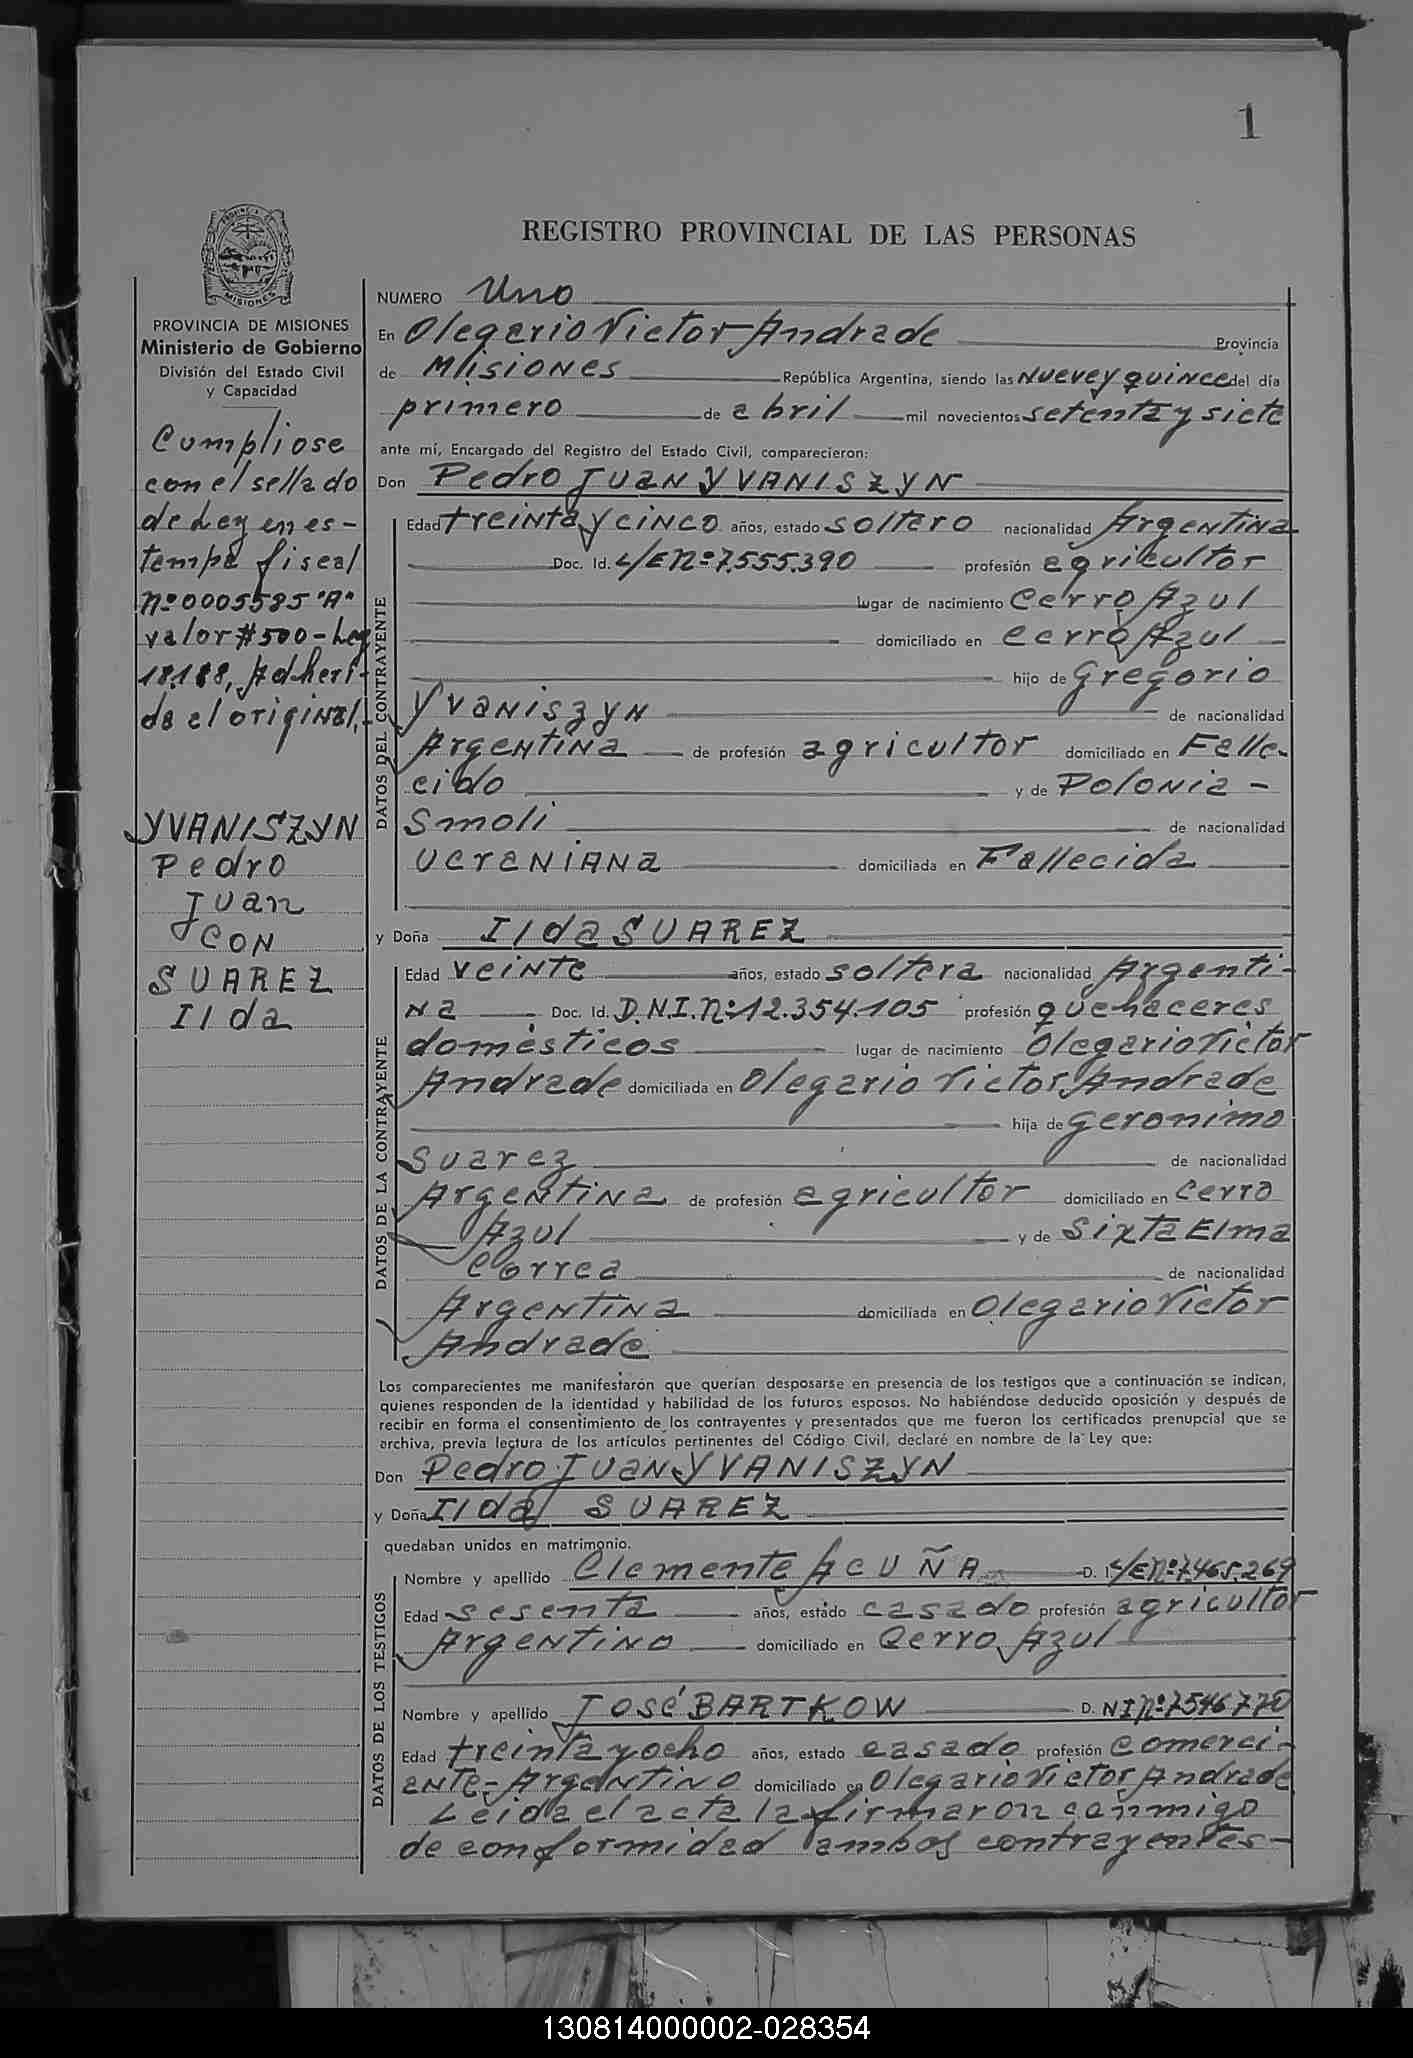 1
REGISTRO PROVINCIAL DE LAS PERSONAS
PROVINCIA DE
MISIONES
PROVINCIA DE MISIONES
Ministerio de Gobierno
División del Estado Civil
y Capacidad
Cumpliose
con el sellado
de Ley en es-
tampa fiscal
Nº 0005585 "A"
valor $ 500 - Ley
18.188, Adheri-
da al original.-
YVANISZYN
Pedro
Juan
CON
SUAREZ
Ilda
NUMERO Uno
En Olegario Victor Andrade Provincia
de Misiones República Argentina, siendo las nueve y quince del día
primero de abril mil novecientos setenta y siete
ante mí, Encargado del Registro del Estado Civil, comparecieron:
Don Pedro Juan YVANISZYN
DATOS DEL CONTRAYENTE
Edad treinta y cinco años, estado soltero nacionalidad Argentina
Doc. Id. L/E Nº 7.555.390 profesión agricultor
lugar de nacimiento Cerro Azul
domiciliado en Cerro Azul
hijo de Gregorio
Yvaniszyn de nacionalidad
Argentina de profesión agricultor domiciliado en Falle-
cido y de Polonia -
Smoli de nacionalidad
ucraniana domiciliada en Fallecida
y Doña Ilda SUAREZ
DATOS DE LA CONTRAYENTE
Edad veinte años, estado soltera nacionalidad Argenti-
na Doc. Id. D.N.I. Nº 12.354.105 profesión quehaceres
domésticos lugar de nacimiento Olegario Victor
Andrade domiciliada en Olegario Victor Andrade
hija de Geronimo
Suarez de nacionalidad
Argentina de profesión agricultor domiciliado en Cerro
Azul y de Sixta Elma
Correa de nacionalidad
Argentina domiciliada en Olegario Victor
Andrade
Los comparecientes me manifestaron que querían desposarse en presencia de los testigos que a continuación se indican,
quienes responden de la identidad y habilidad de los futuros esposos. No habiéndose deducido oposición y después de
recibir en forma el consentimiento de los contrayentes y presentados que me fueron los certificados prenupcial que se
archiva, previa lectura de los artículos pertinentes del Código Civil, declaré en nombre de la Ley que:
Don Pedro Juan YVANISZYN
y Doña Ilda SUAREZ
quedaban unidos en matrimonio.
DATOS DE LOS TESTIGOS
Nombre y apellido Clemente ACUÑA D. I. L/E Nº 7.465.269
Edad sesenta años, estado casado profesión agricultor
Argentino domiciliado en Cerro Azul
Nombre y apellido José BARTKOW D. NI Nº 7546770
Edad treinta y ocho años, estado casado profesión comerci-
ante - Argentino domiciliado en Olegario Victor Andrade
Leida el acta la firmaron conmigo
de conformidad ambos contrayentes -
130814000002-028354